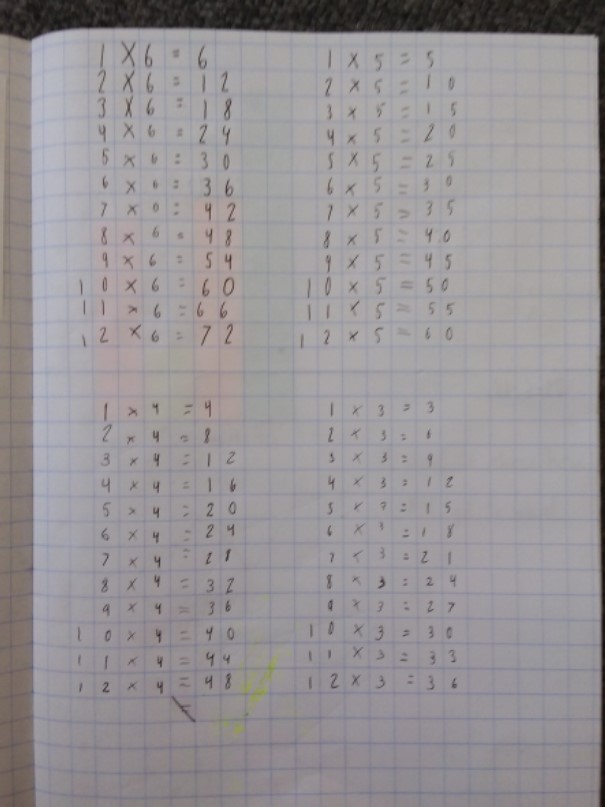 1 × 6 = 6
2 × 6 = 12
3 × 6 = 18
4 × 6 = 24
5 × 6 = 30
6 × 6 = 36
7 × 0 = 42
8 × 6 = 48
9 × 6 = 54
10 × 6 = 60
11 × 6 = 66
12 × 6 = 72
1 × 5 = 5
2 × 5 = 10
3 × 5 = 15
4 × 5 = 20
5 × 5 = 25
6 × 5 = 30
7 × 5 = 35
8 × 5 = 40
9 × 5 = 45
10 × 5 = 50
11 × 5 = 55
12 × 5 = 60
1 × 4 = 4
2 × 4 = 8
3 × 4 = 12
4 × 4 = 16
5 × 4 = 20
6 × 4 = 24
7 × 4 = 28
8 × 4 = 32
9 × 4 = 36
10 × 4 = 40
11 × 4 = 44
12 × 4 = 48
1 × 3 = 3
2 × 3 =
3 × 3 = 9
4 × 3 = 12
5 × 3 = 15
6 × 3 = 18
7 × 3 = 21
8 × 3 = 24
9 × 3 = 27
10 × 3 = 30
11 × 3 = 33
12 × 3 = 36